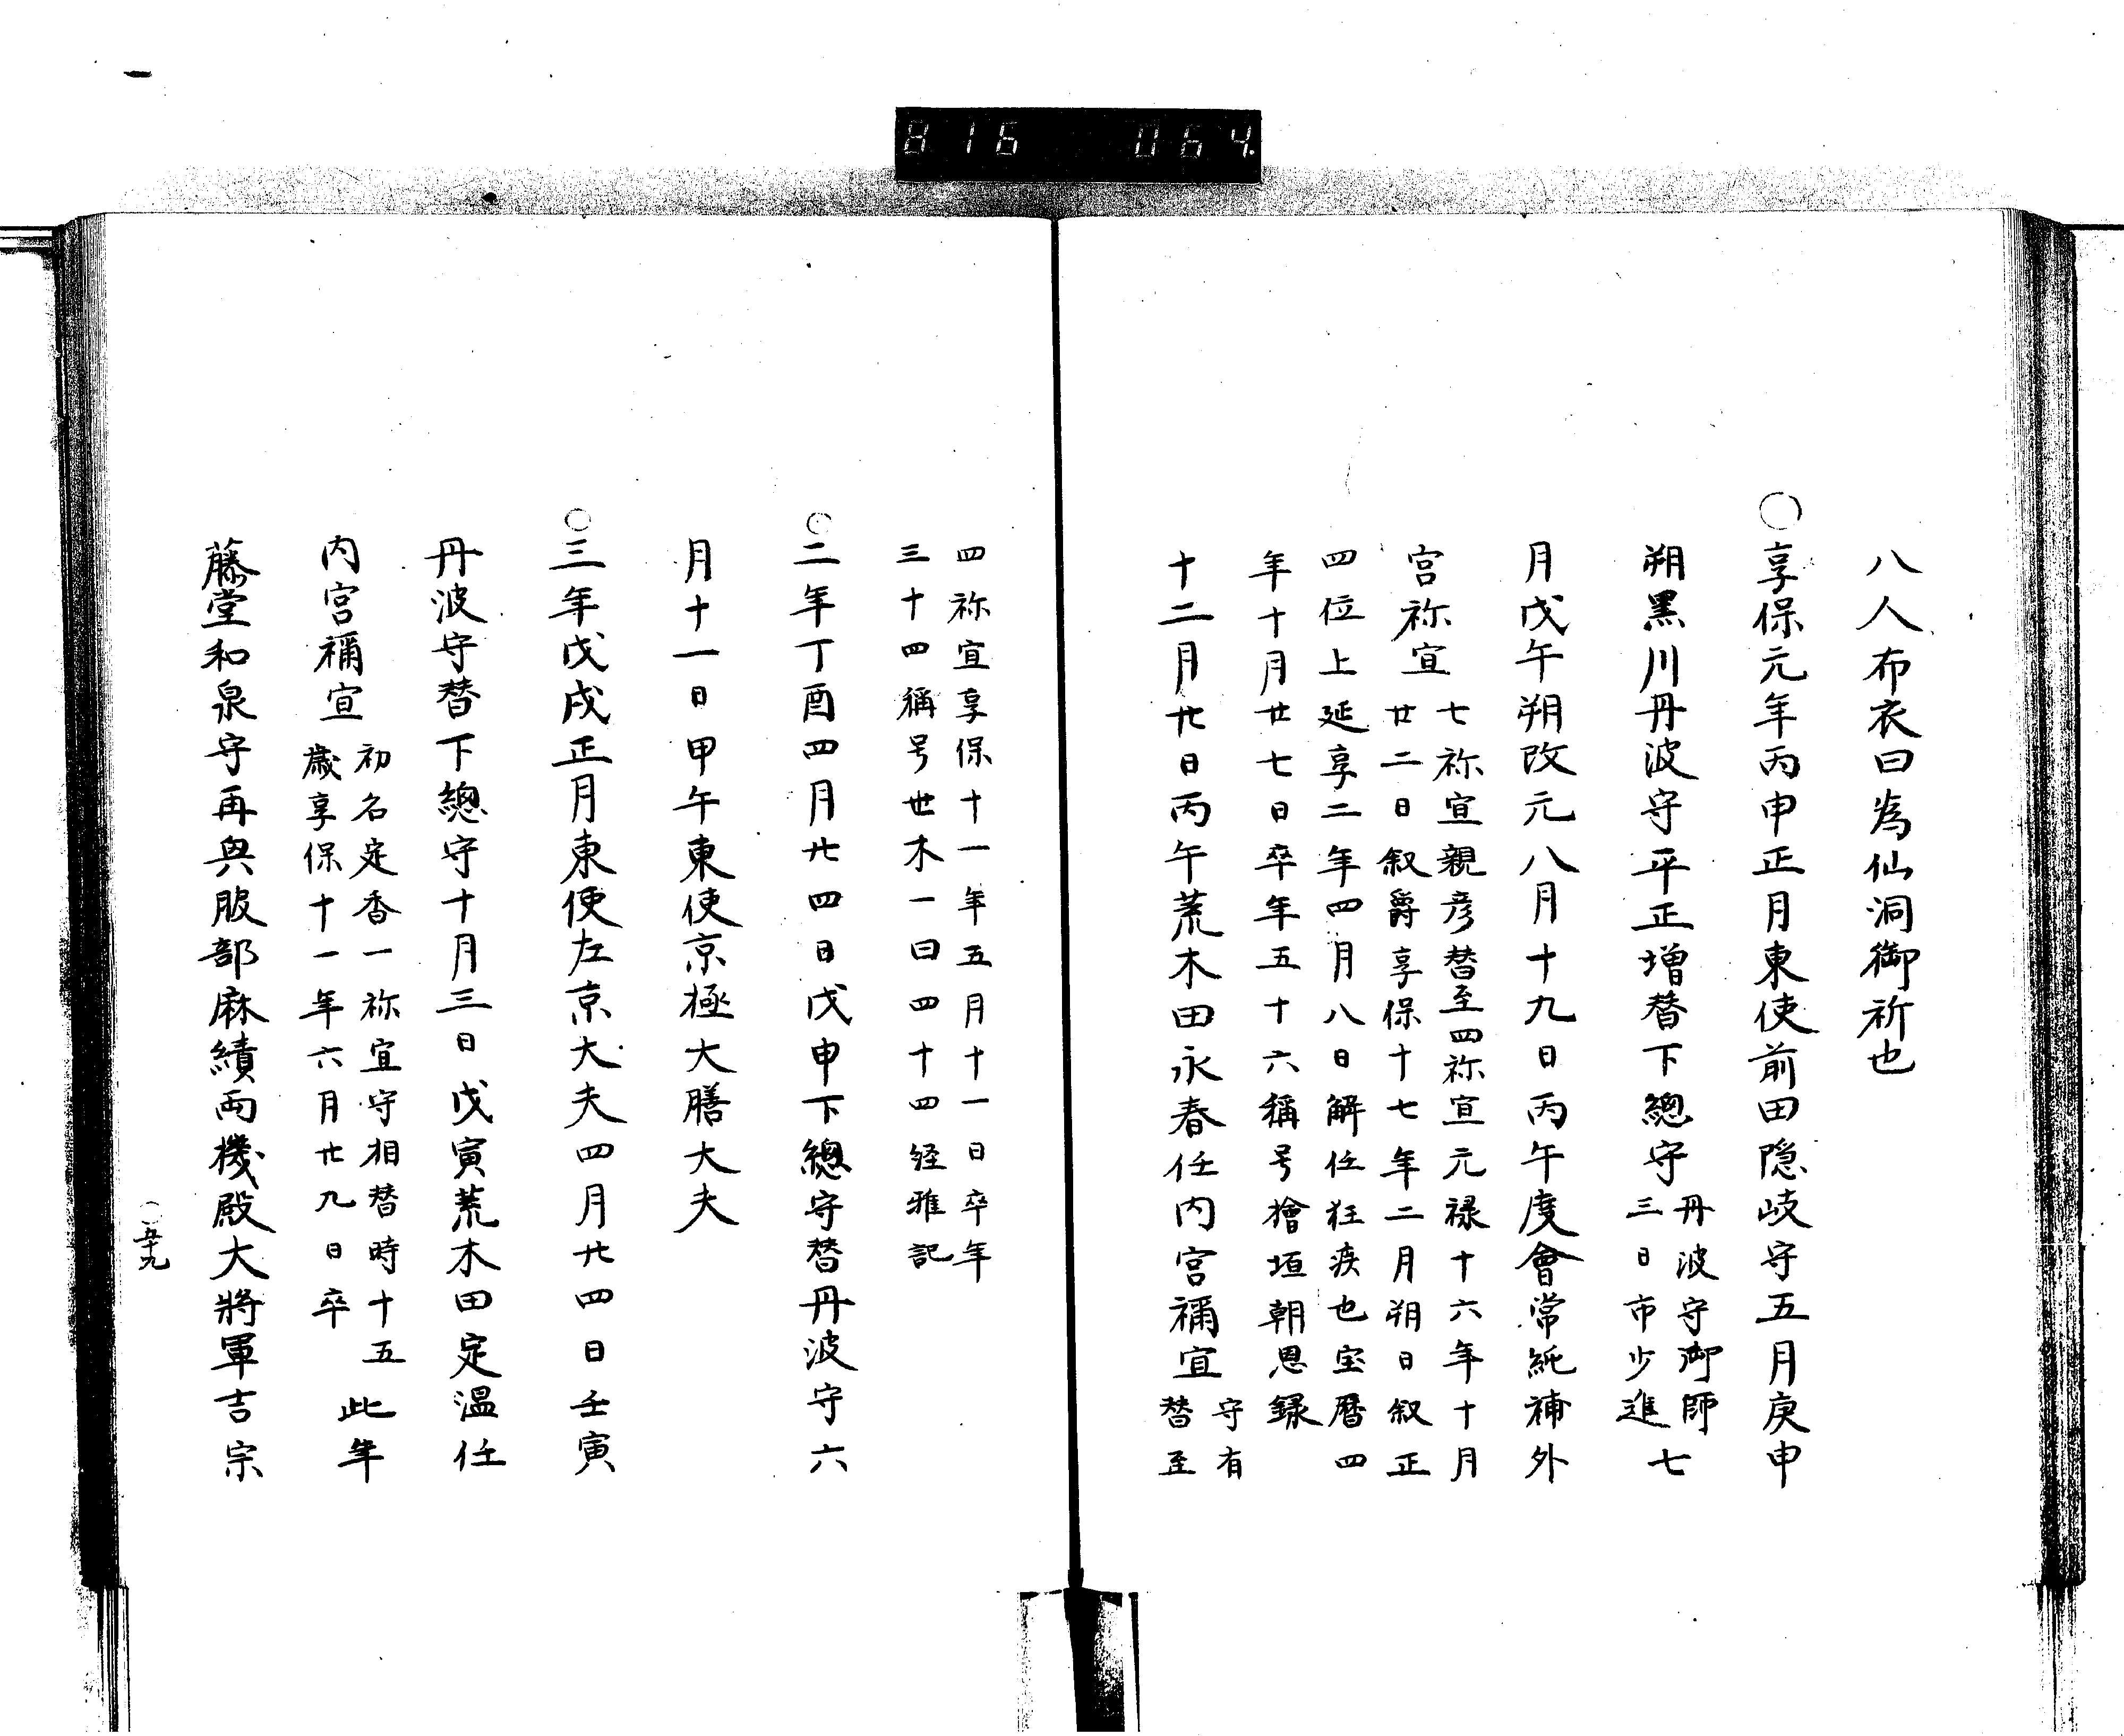 816 064.
八人布衣曰為仙洞御祈也
○享保元年丙申正月東使前田隠岐守五月庚申
朔黒川丹波守平正増替下總守
丹波守御師
三日市少進
七
月戊午朔改元八月十九日丙午度會常純補外
宮祢宜
七祢宜親彦替至四祢宜元禄十六年十月
廿二日叙爵享保十七年二月朔日叙正
四位上延享二年四月八日解任狂疾也宝暦四
年十月廿七日卒年五十六稱号檜垣朝恩録
十二月廿日丙午荒木田永春任内宮禰宜
守有
替至
四祢宜享保十一年五月十一日卒年
三十四稱号世木一曰四十四経雅記
○二年丁酉四月廿四日戊申下總守替丹波守六
月十一日甲午東使京極大膳大夫
○三年戊戌正月東使左京大夫四月廿四日壬寅
丹波守替下總守十月三日戊寅荒木田定温任
内宮禰宜
初名定香一祢宜守相替時十五
歳享保十一年六月廿九日卒
此年
藤堂和泉守再興服部麻績両機殿大將軍吉宗
五十九